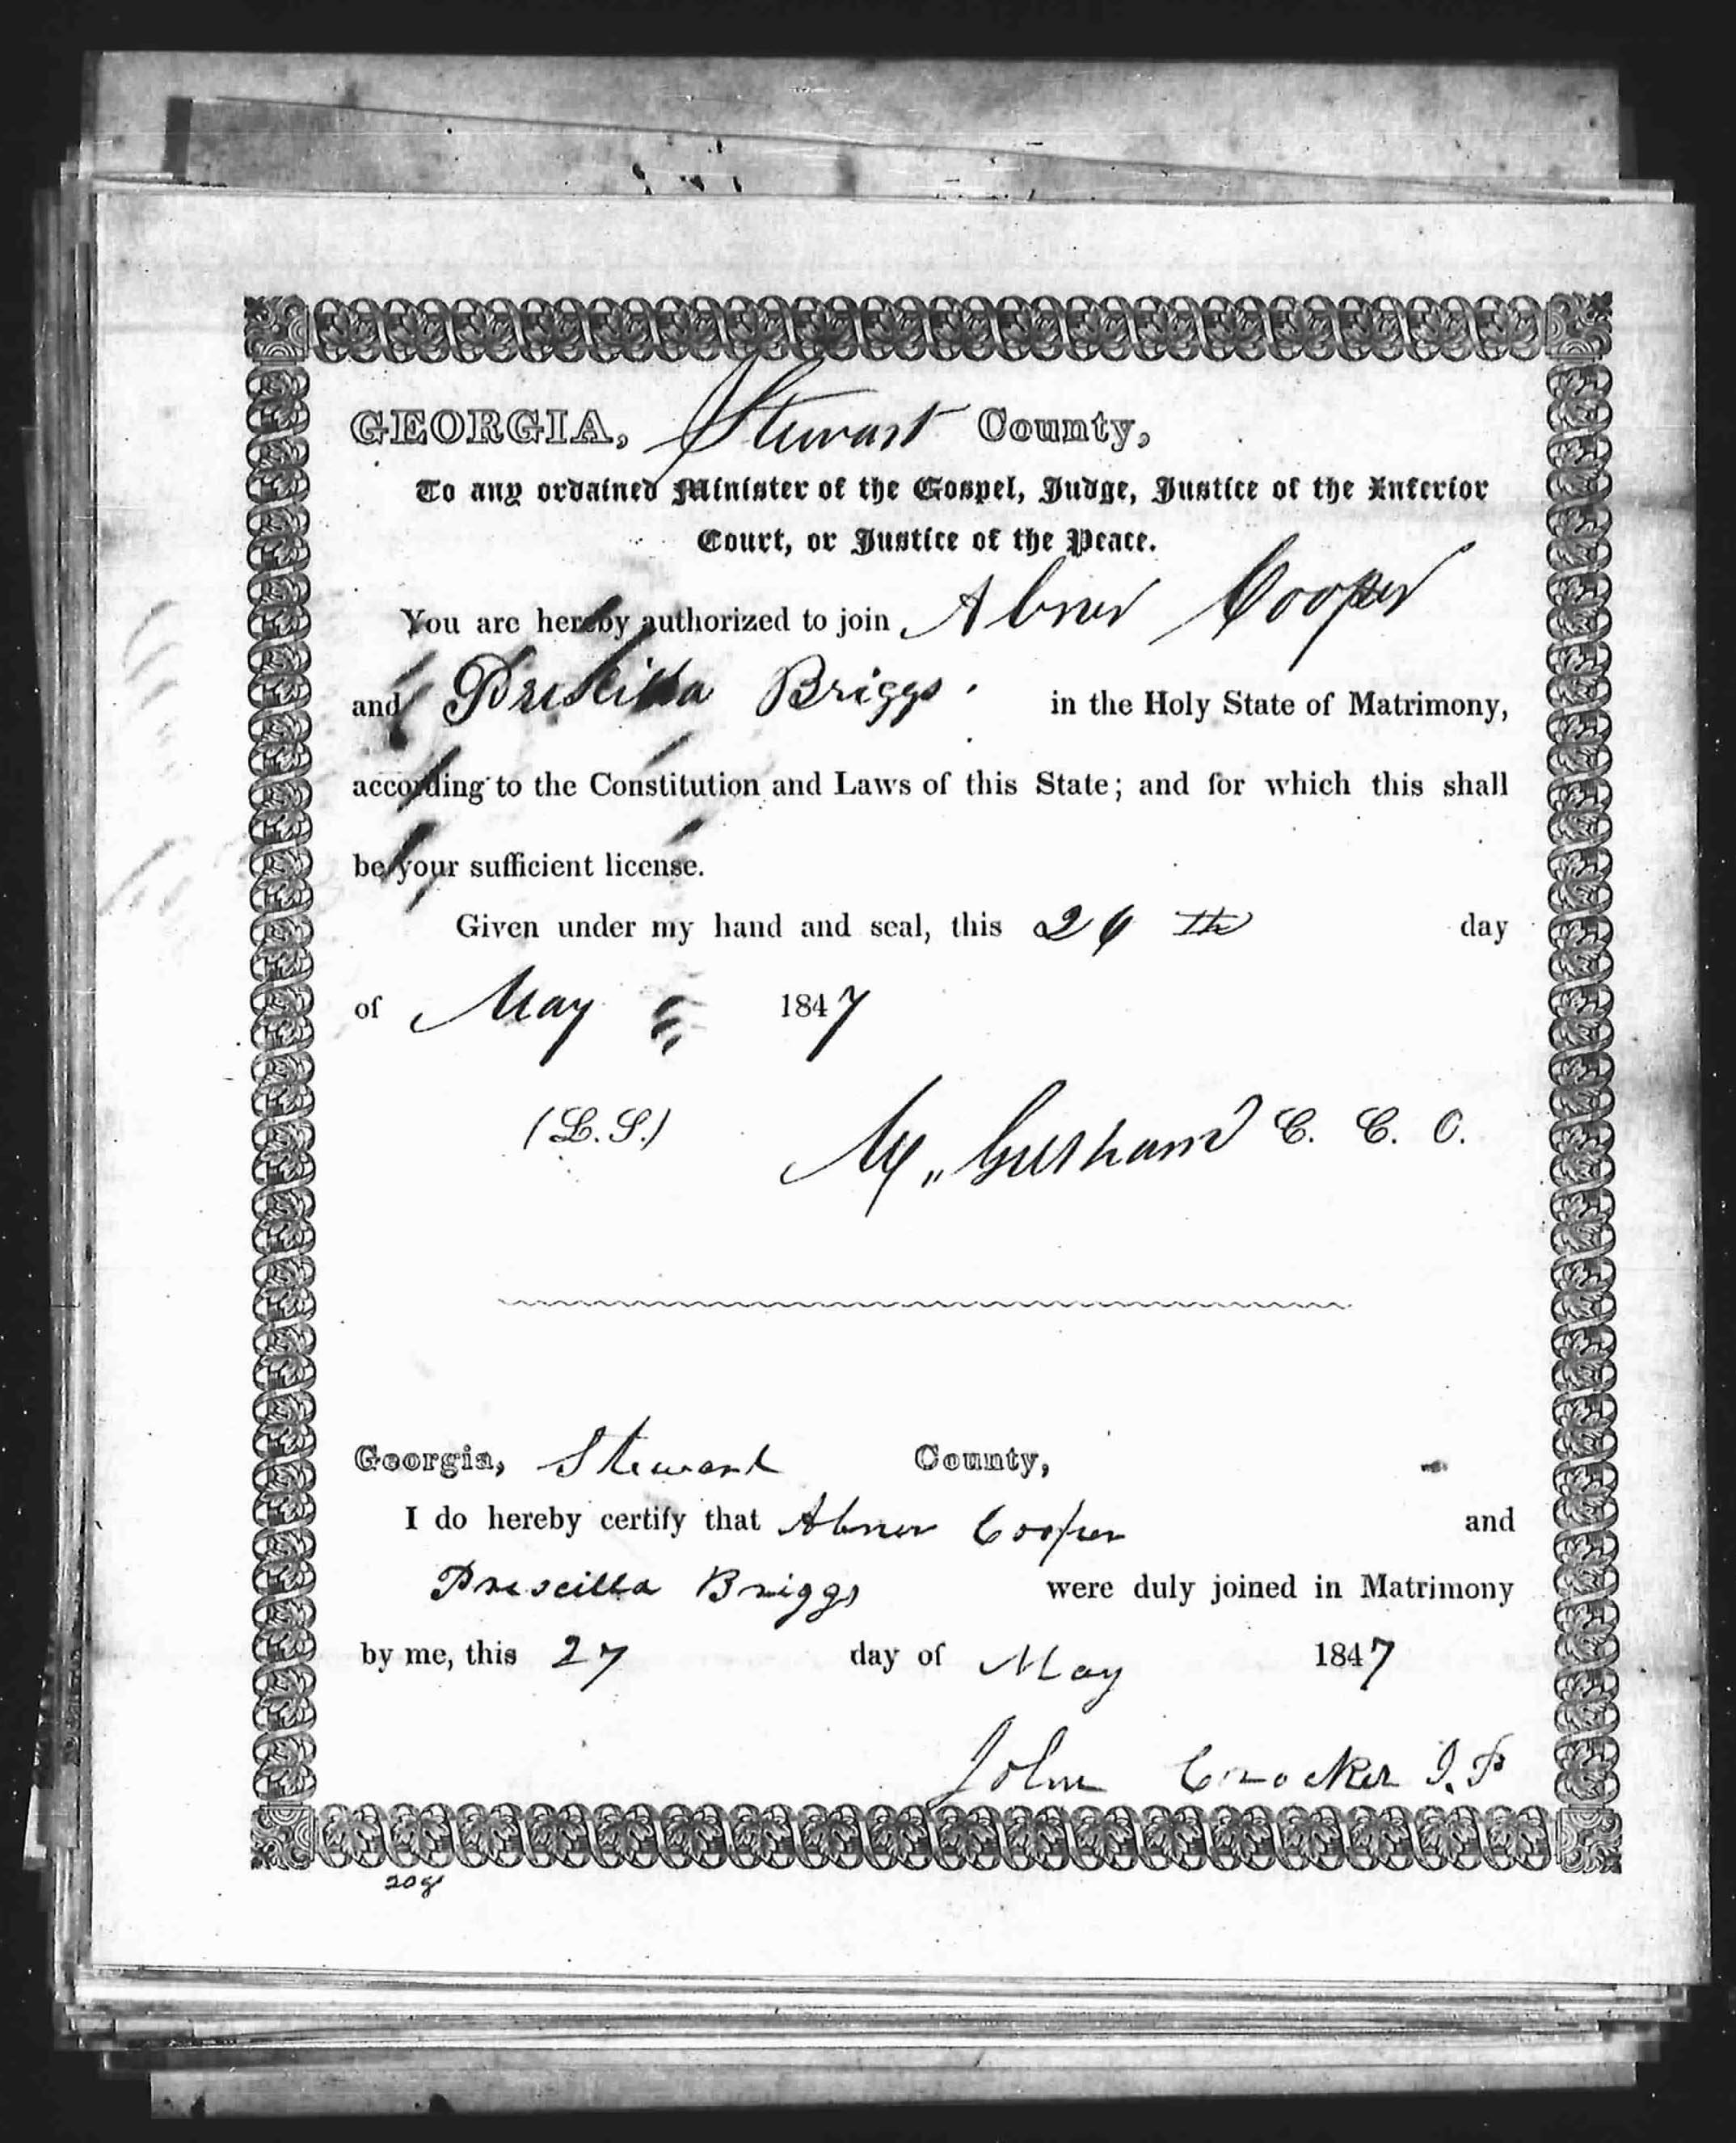 GEORGIA, Stewart County,
To any ordained Minister of the Gospel, Judge, Justice of the Inferior
Court, or Justice of the Peace.
You are hereby authorized to join Abner Cooper
and Priscilla Briggs. in the Holy State of Matrimony,
according to the Constitution and Laws of this State; and for which this shall
be your sufficient license.
Given under my hand and seal, this 26 th day
of May 1847
(L.S.) M. Gresham C. C. O.
Georgia, Stewart County,
I do hereby certify that Abner Cooper and
Priscilla Briggs were duly joined in Matrimony
by me, this 27 day of May 1847
John Crocker J.P